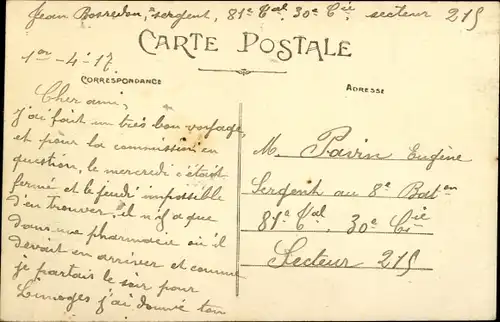 Jean Bosredon, sergent, 81e Cal, 30e Cie secteur 215
CARTE POSTALE
1er - 4 - 17
CORRESPONDANCE
ADRESSE
Cher ami,
J'ai fait un très bon voyage,
et pour la commission en
question, le mercredi c'était
fermé et le jeudi impossible
d'en trouver, il n'y a que
dans une pharmacie où il
devait en arriver et comme
je partais le soir pour
Limoges j'ai donné ton
M. Pavin Eugène
Sergent au 8e Baton
81e Cal, 30e Cie
Secteur 215